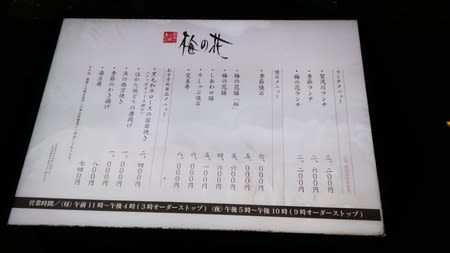 梅の花
ランチメニュー
・賀茂川ランチ 三、二〇〇円
・季節ランチ 二、六〇〇円
・梅の花ランチ 二、二〇〇円
懐石メニュー
・季節懐石 七、〇〇〇円
・梅の花膳「極」 六、〇〇〇円
・梅の花膳 五、〇〇〇円
・梅の花 四、〇〇〇円
・しあわせ 五、一〇〇円
・牛しゃぶ懐石 六、〇〇〇円
八、〇〇〇円
おすすめ単品メニュー
・黒毛和牛ロースの溶岩焼き 二、四〇〇円
・はかた地どりの唐揚げ 一、〇〇〇円
・魚の西京焼き 一、〇〇〇円
・季節のかき揚げ 八〇〇円
・湯豆腐 七四〇円
営業時間/(昼)午前11時~午後4時(3時オーダーストップ) (夜)午後5時~午後10時(9時オーダーストップ)